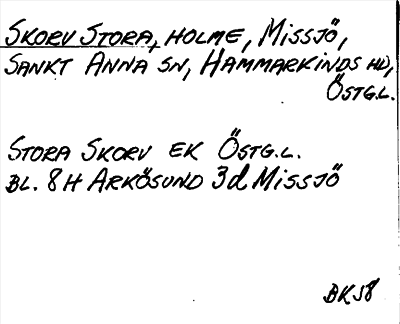 SKORV STORA, HOLME, MISSJÖ,
SANKT ANNA SN, HAMMARKINDS HD,
ÖSTG.L.
STORA SKORV EK ÖSTG.L.
BL. 8H ARKÖSUND 3d MISSJÖ
BKJ8